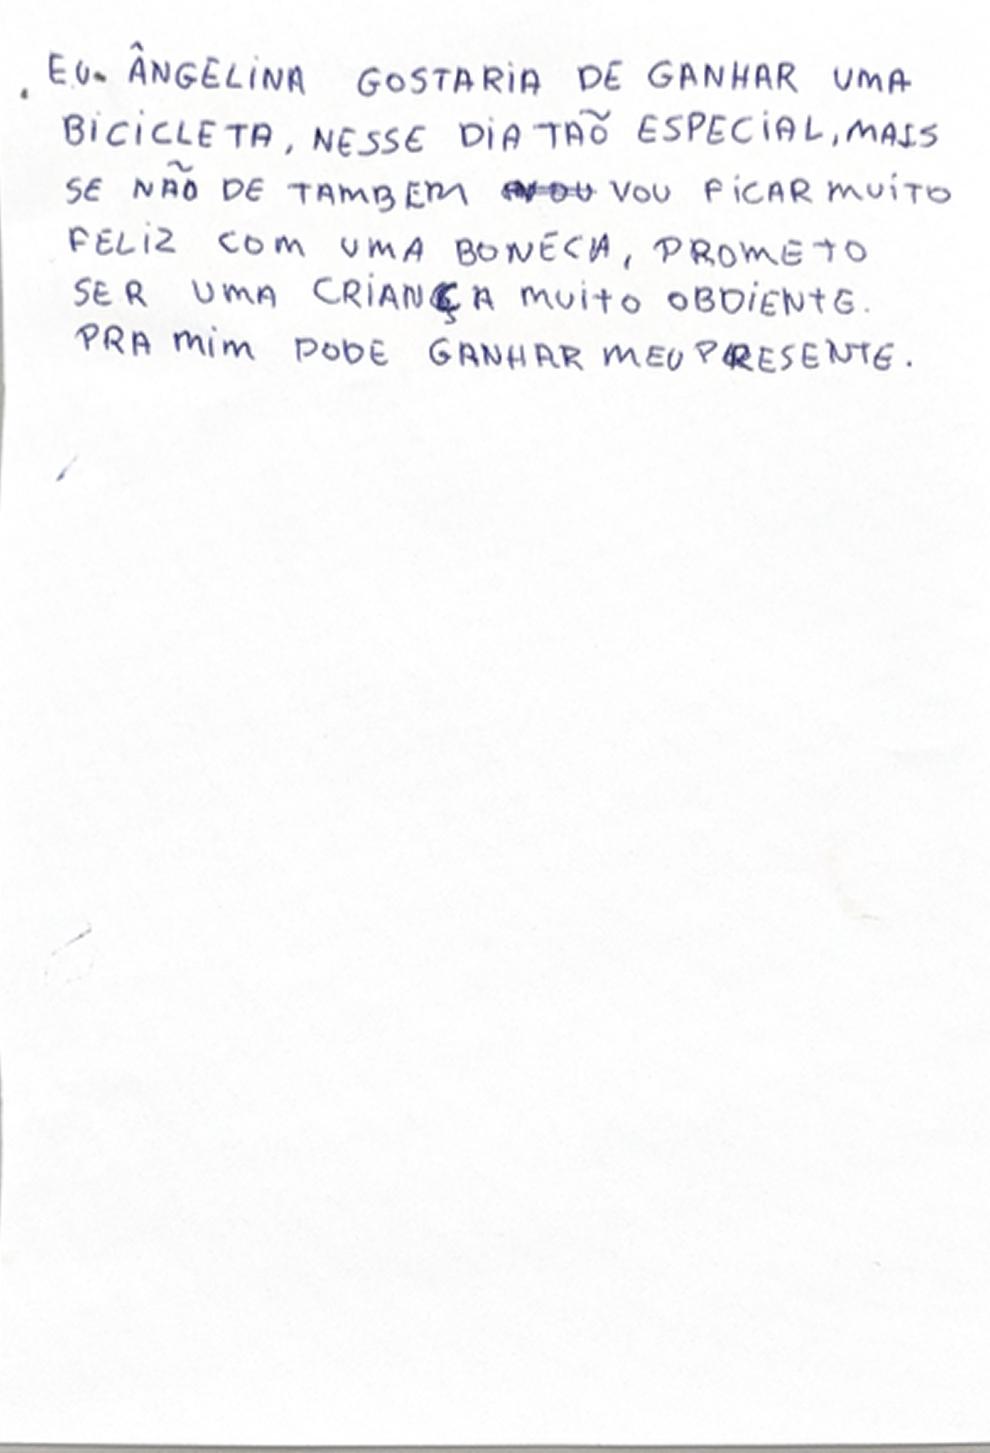 EU. ÂNGELINA GOSTARIA DE GANHAR UMA
BICICLETA, NESSE DIA TAÕ ESPECIAL, MAIS
SE NÃO DE TAMBEM VOU FICAR MUITO
FELIZ COM UMA BONECA, PROMETO
SER UMA CRIANÇA MUITO OBDIENTE.
PRA MIM PODE GANHAR MEU PRESENTE.